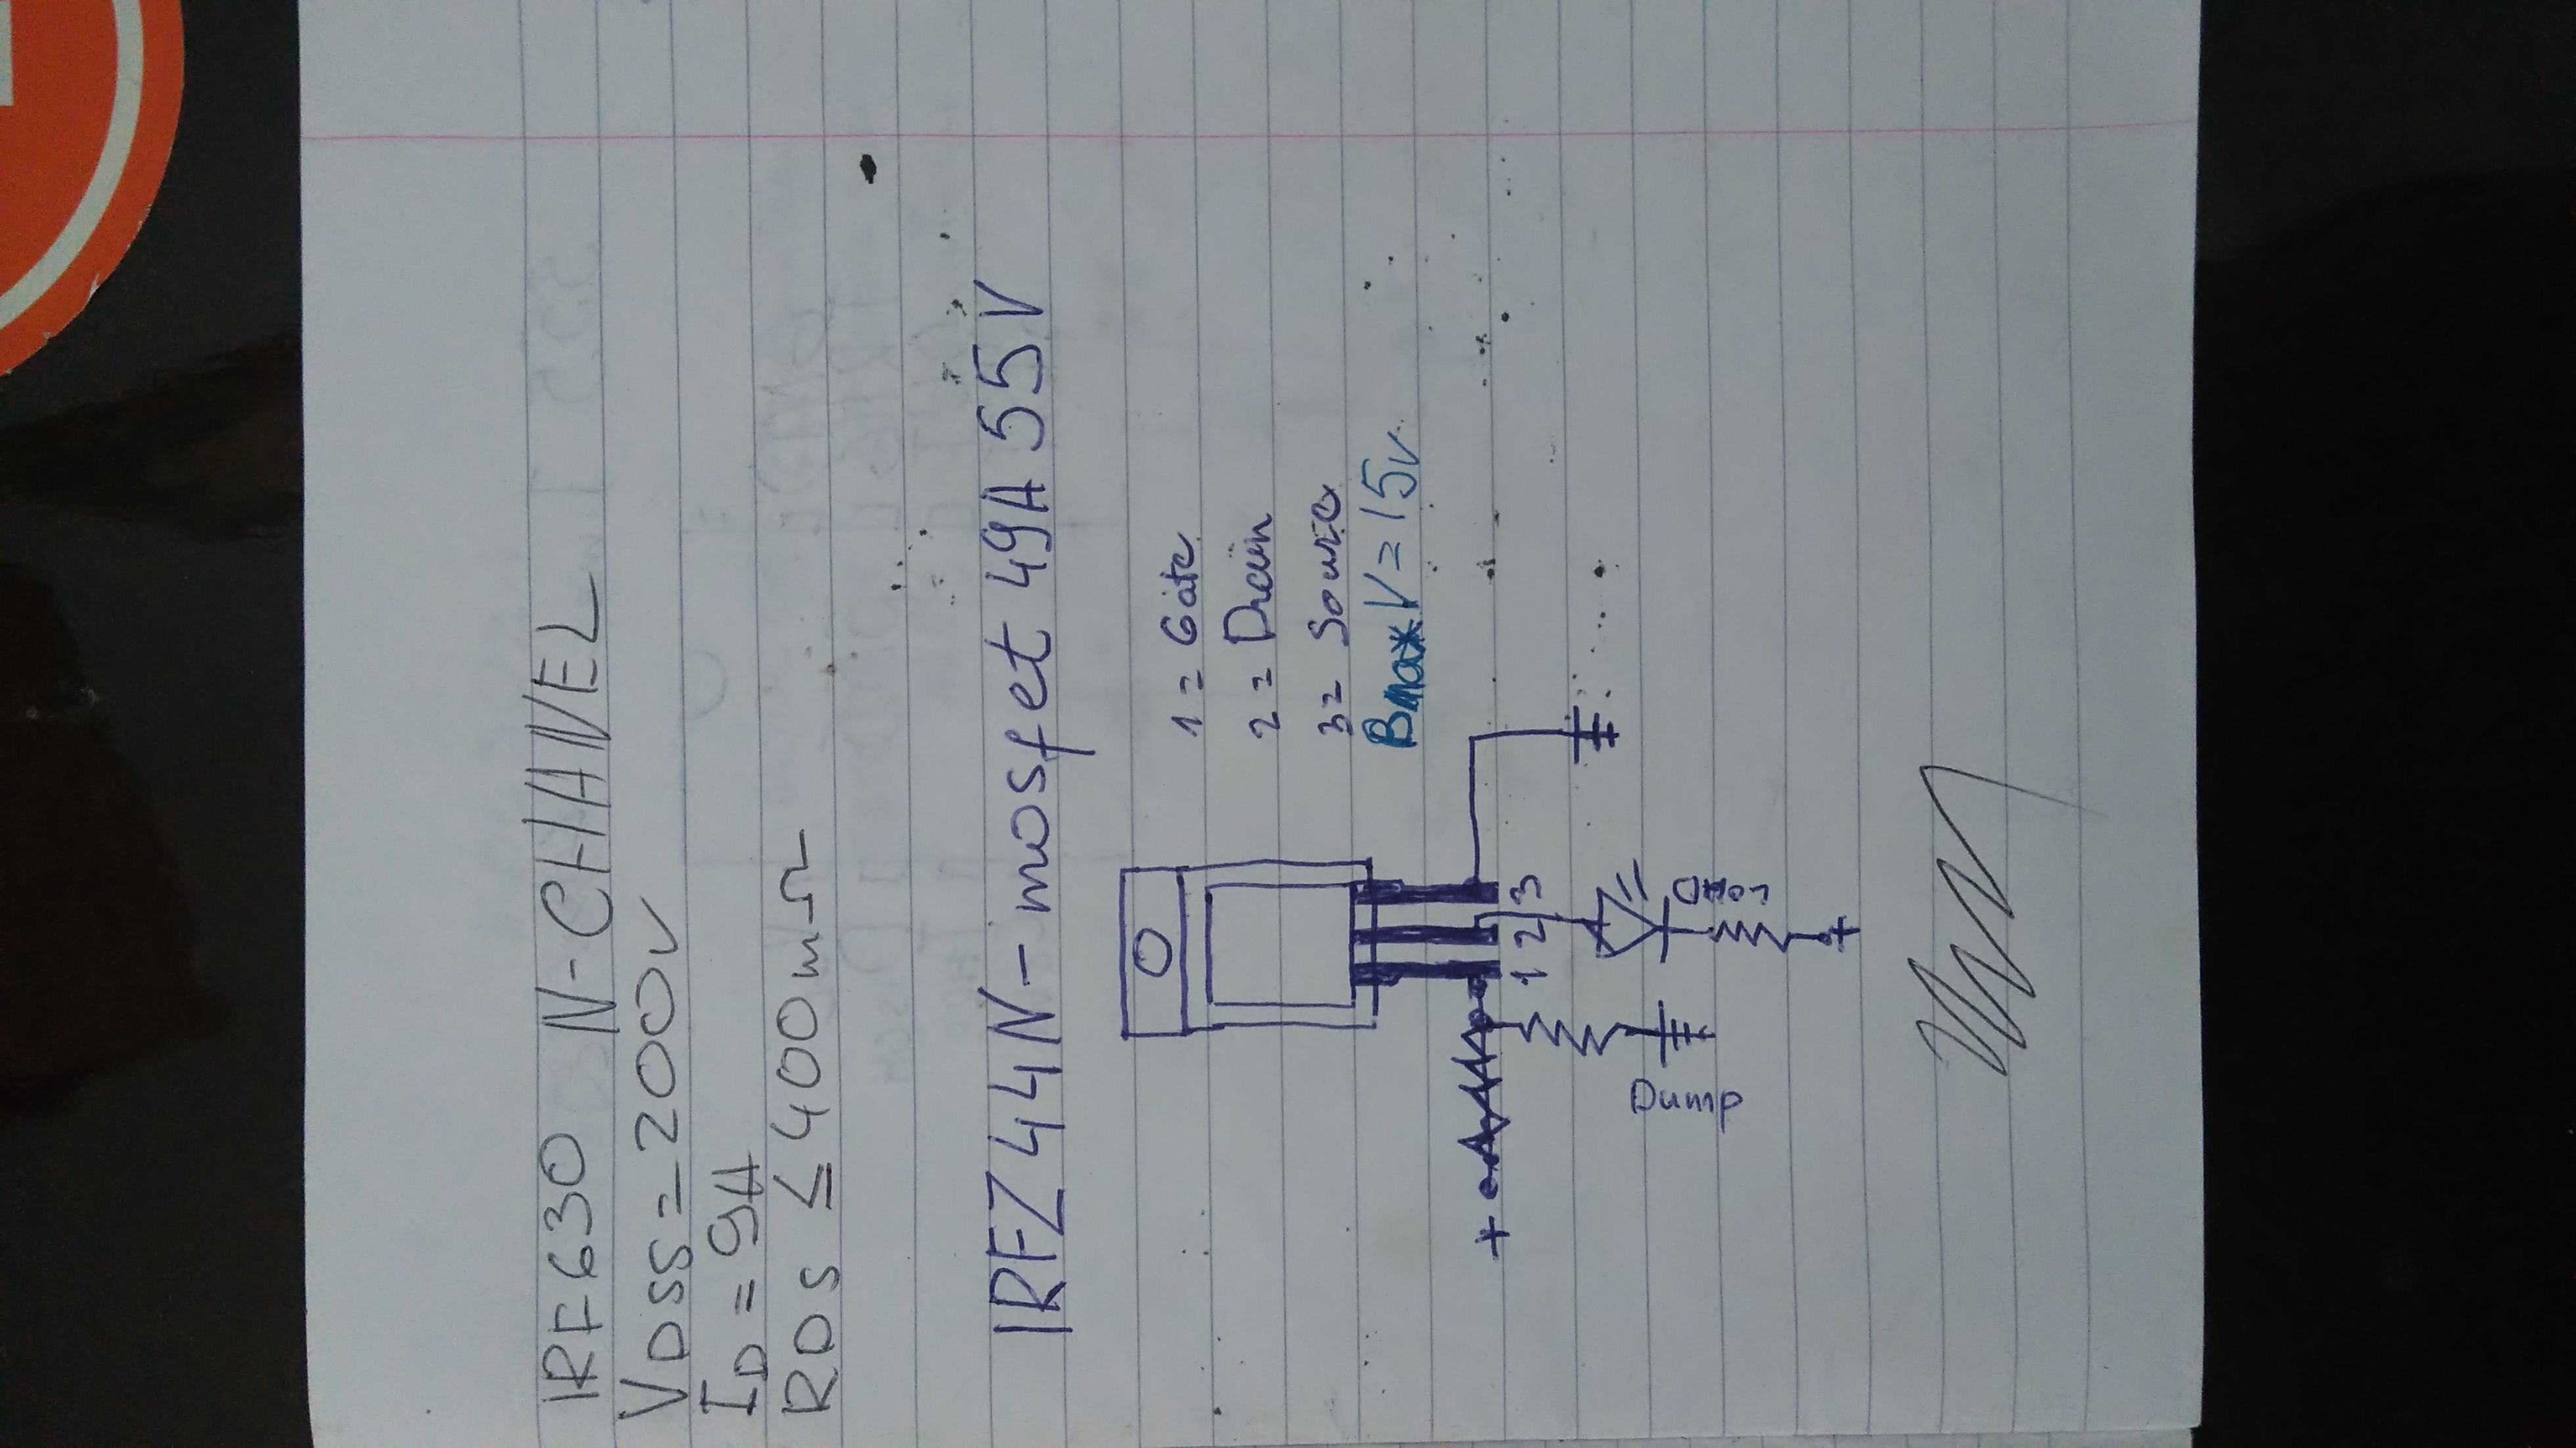 IRF630 N-CHANNEL
VDSS=200V
ID=9A
RDS ≤ 400mΩ
IRFZ44N-mosfet 49A 55V
1 = Gate
2 = Drain
3= Source
Bmax V=15V
+
1 2 3
Dump
+